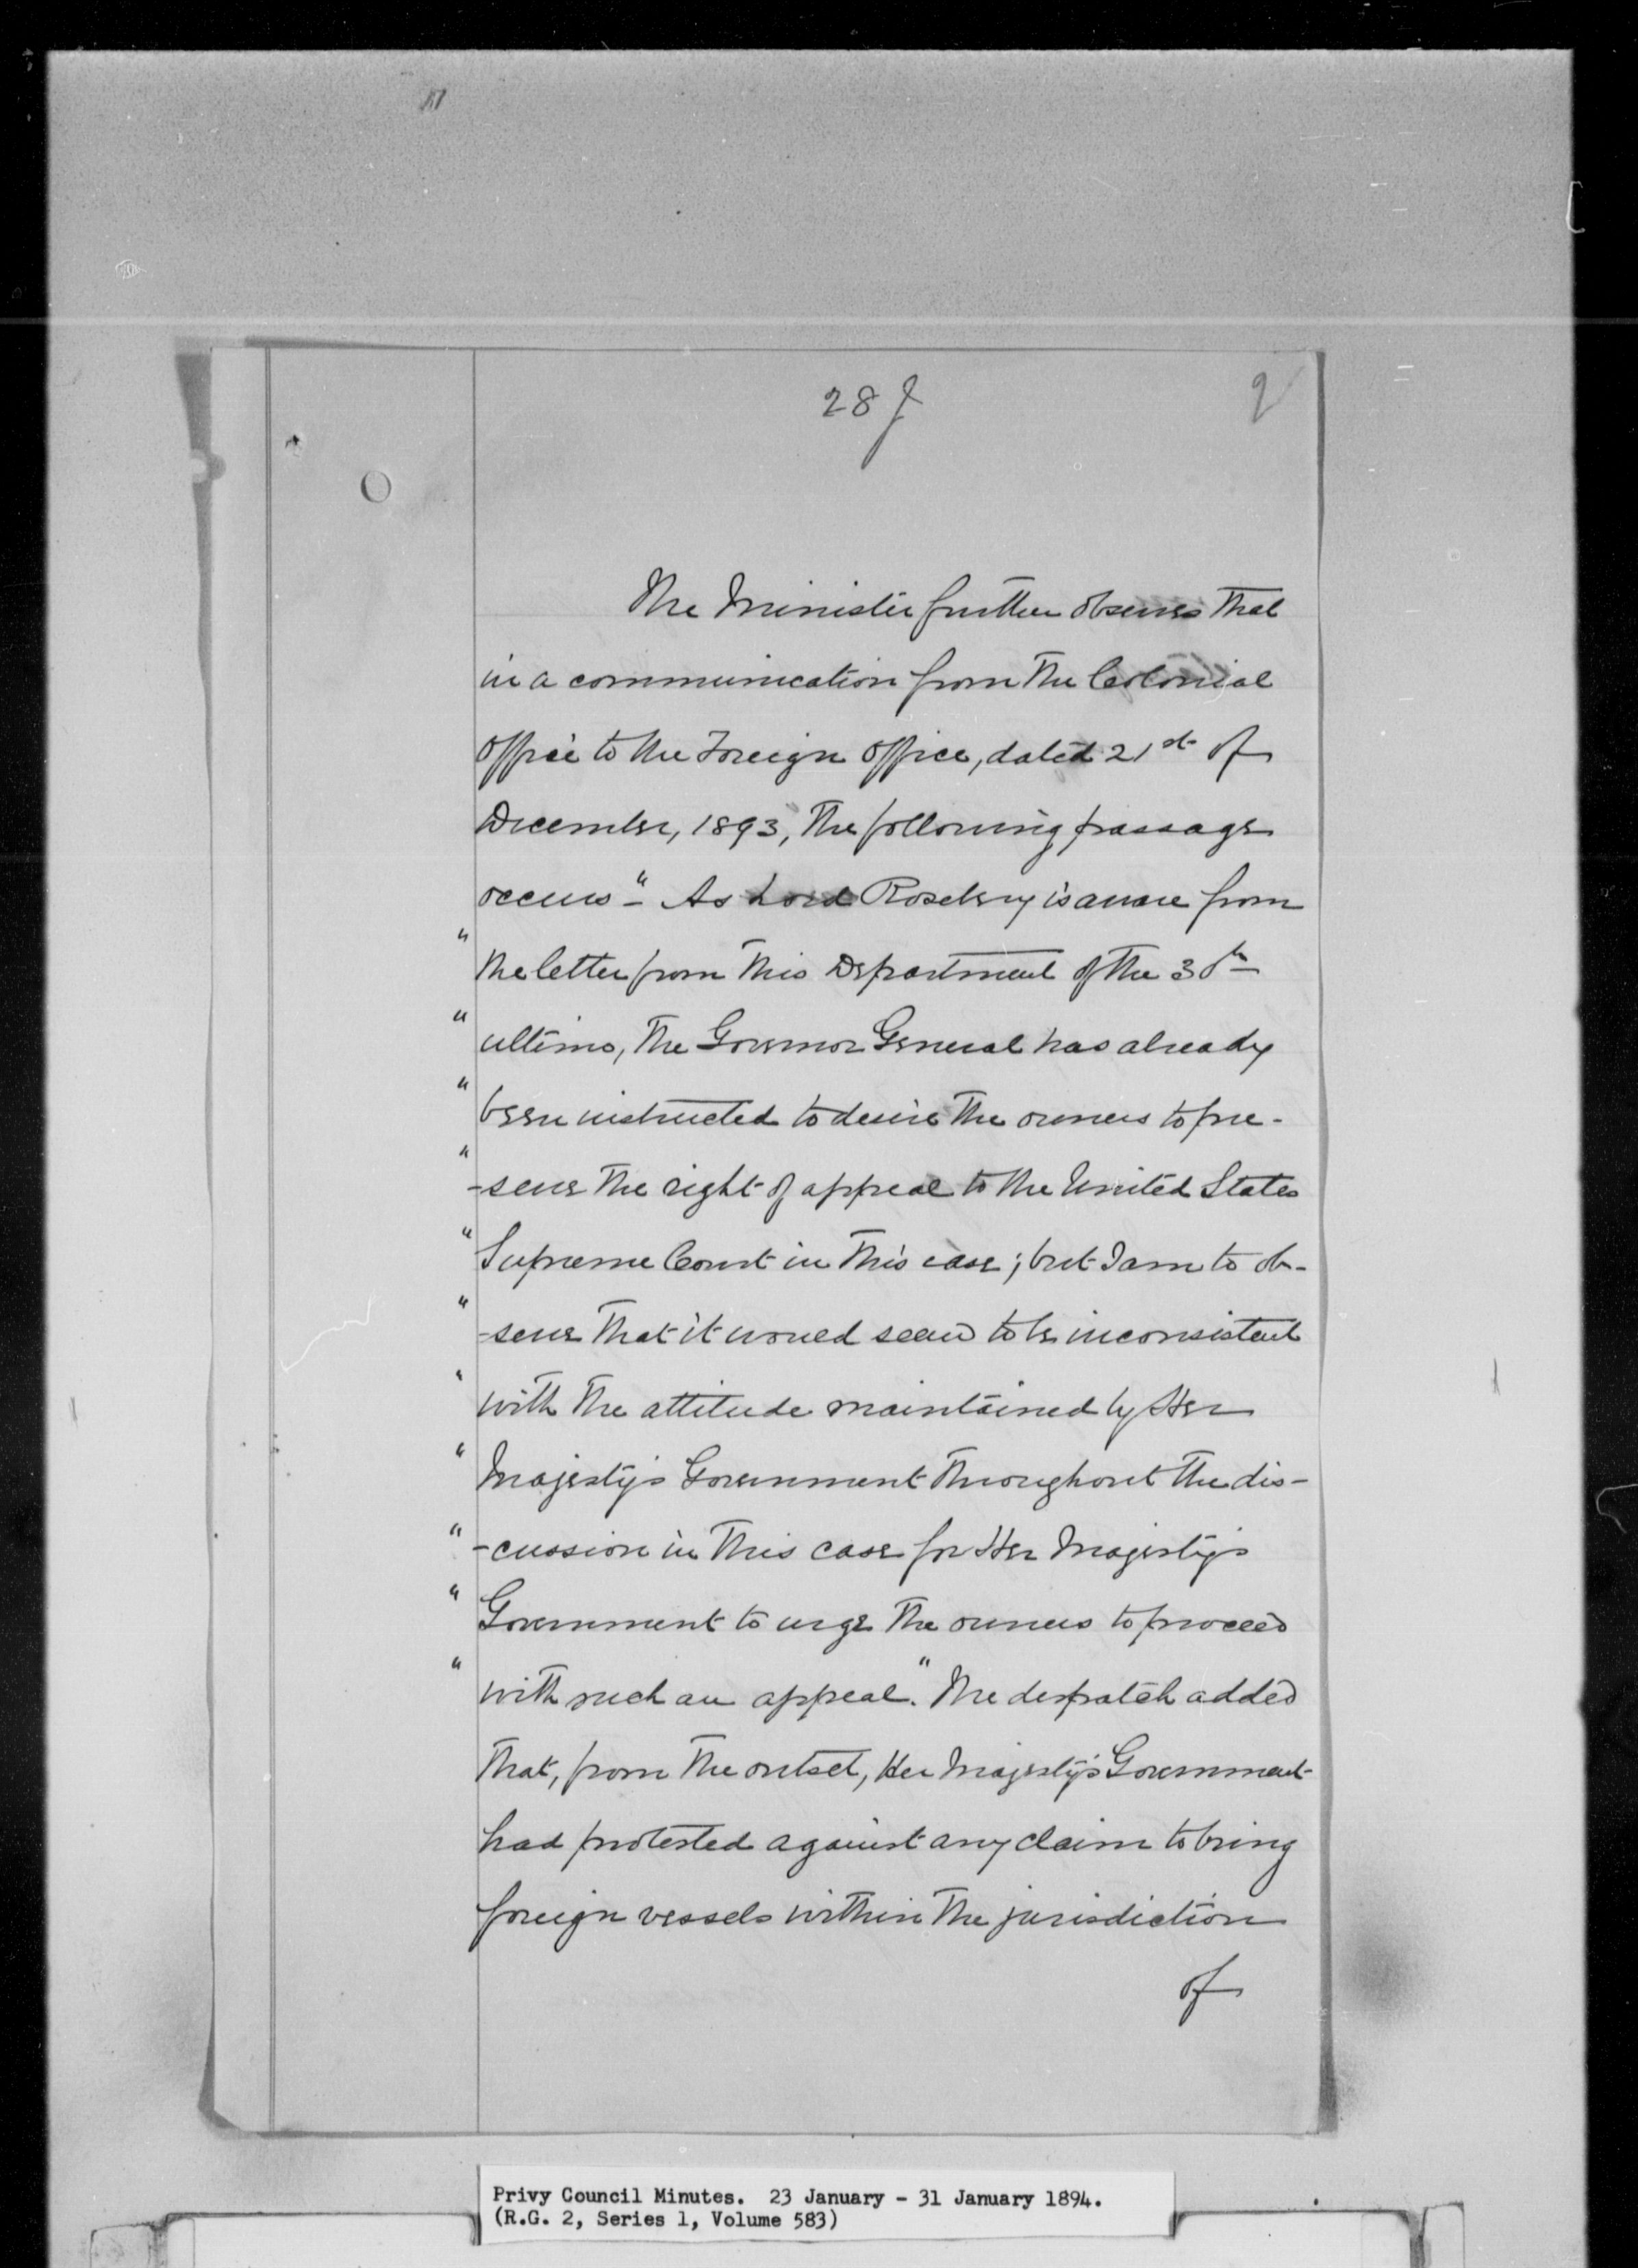 28 f
The Minister further observes that
in a communication from the Colonial
Office to the Foreign Office, dated 21st of
December, 1893, the following passage
occurs - " As Lord Rosebery is aware from
" the letter from this Department of the 30th
" ultimo, the Governor General has already
" been instructed to desire the owners to pre-
" -serve the right of appeal to the United States
" Supreme Court in this case; but I am to ob-
" -serve that it would seem to be inconsistent
" with the attitude maintained by Her
" Majesty's Government throughout the dis-
" -cussion in this case for Her Majesty's
" Government to urge the owners to proceed
" with such an appeal." The despatch added
that, from the outset, Her Majesty's Government
had protested against any claim to bring
foreign vessels within the jurisdiction
of
Privy Council Minutes. 23 January - 31 January 1894.
(R.G. 2, Series 1, Volume 583)